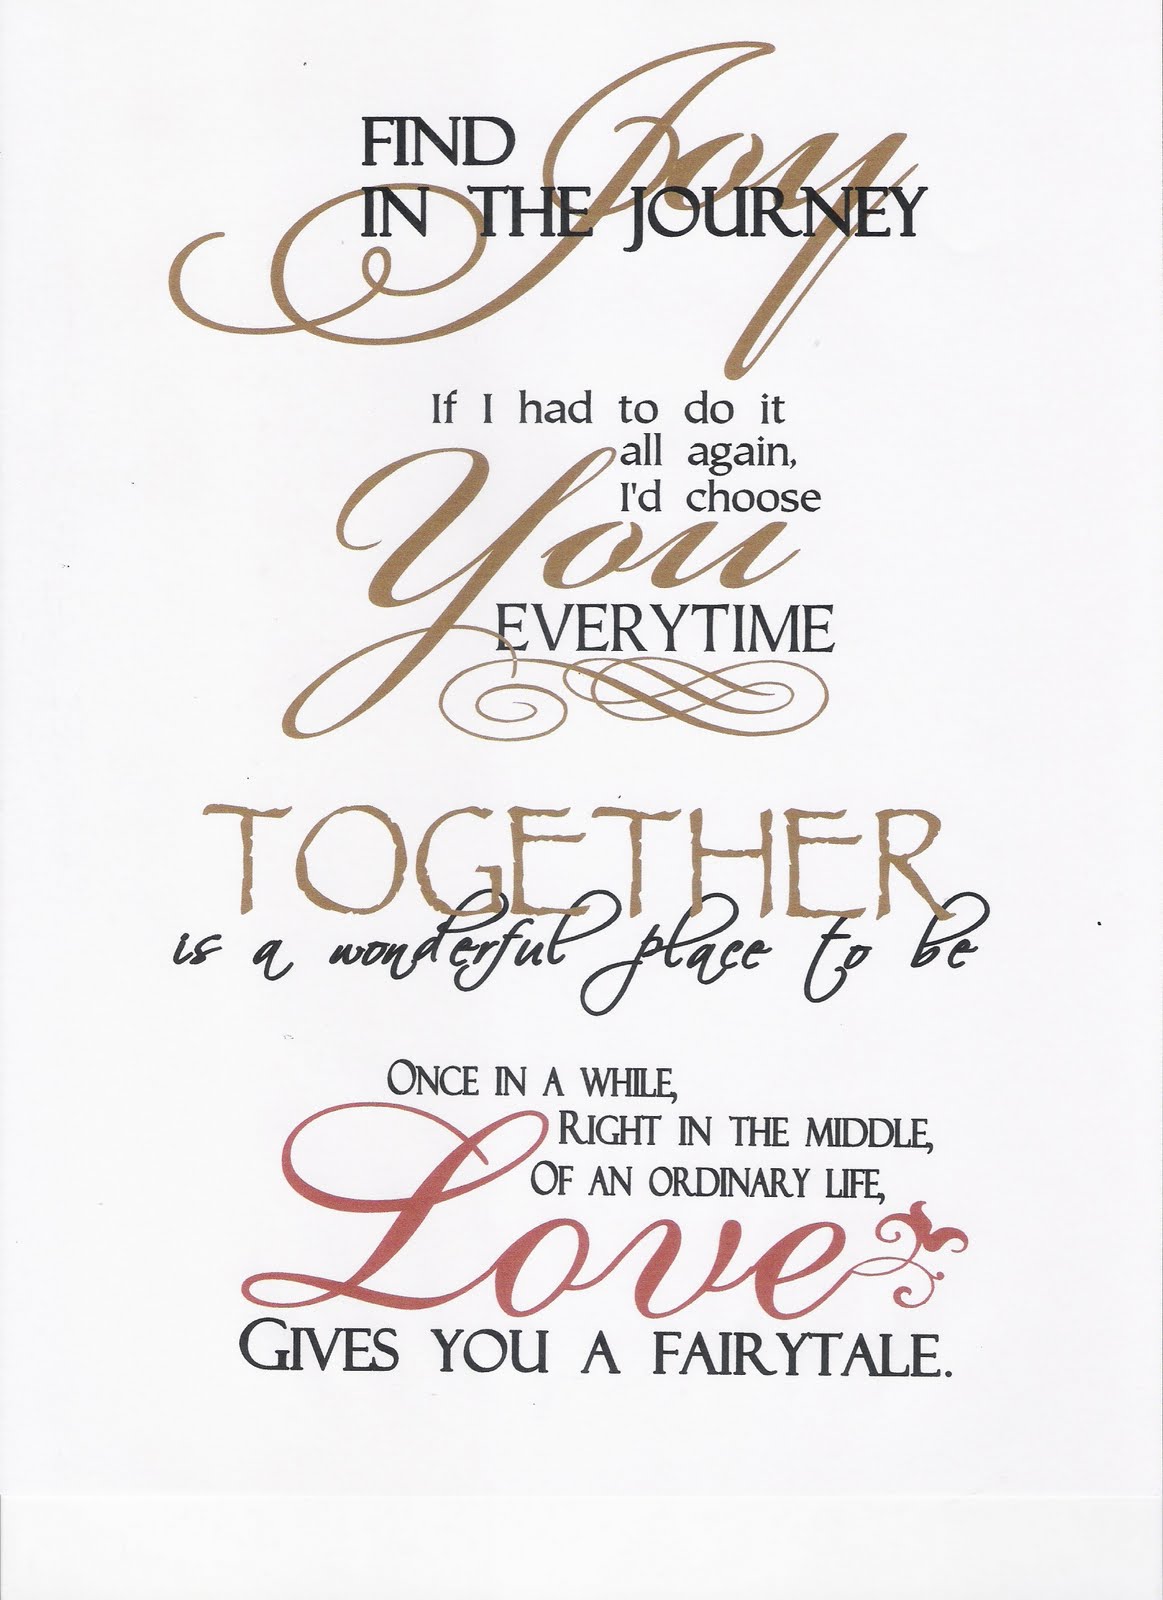 FIND Joy
IN THE JOURNEY
If I had to do it
all again,
I'd choose
You
EVERYTIME
TOGETHER
is a wonderful place to be
ONCE IN A WHILE,
RIGHT IN THE MIDDLE,
OF AN ORDINARY LIFE,
Love
GIVES YOU A FAIRYTALE.